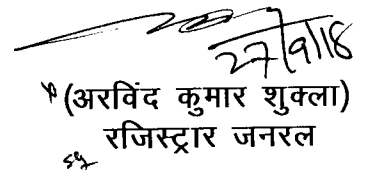 27/9/18
(अरविंद कुमार शुक्ला)
रजिस्ट्रार जनरल